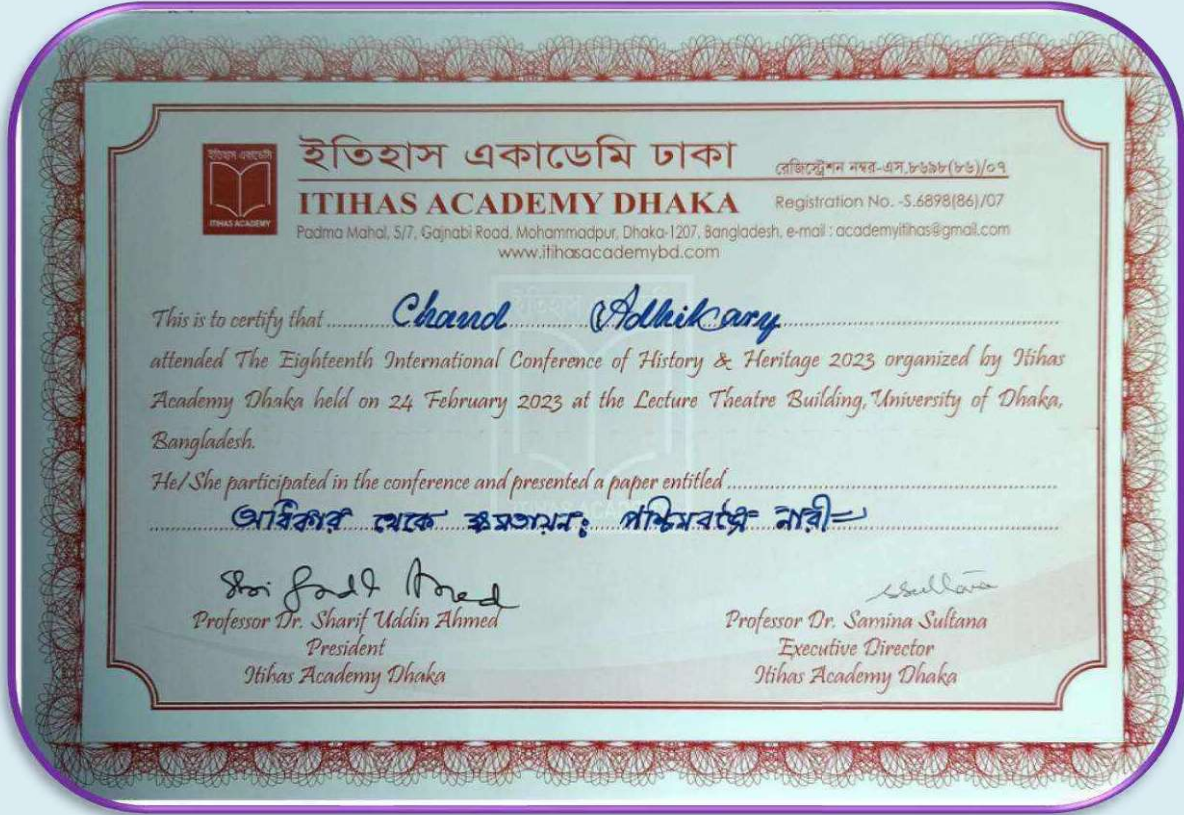 ইতিহাস একাডেমি
ITIHAS ACADEMY
ইতিহাস একাডেমি ঢাকা
রেজিস্ট্রেশন নম্বর-এস.৮৬৯৮(৮৬)/০৭
ITIHAS ACADEMY DHAKA
Registration No. -S.6898(86)/07
Padma Mahal, 5/7, Gajnabi Road, Mohammadpur, Dhaka-1207, Bangladesh, e-mail : academyitihas@gmail.com
www.itihasacademybd.com
This is to certify that Chand Adhikary
attended The Eighteenth International Conference of History & Heritage 2023 organized by Itihas
Academy Dhaka held on 24 February 2023 at the Lecture Theatre Building, University of Dhaka,
Bangladesh.
He/She participated in the conference and presented a paper entitled
অধিকার থেকে ক্ষমতায়ন: পশ্চিমবঙ্গে নারী
Professor Dr. Sharif Uddin Ahmed
President
Itihas Academy Dhaka
SSultana
Professor Dr. Samina Sultana
Executive Director
Itihas Academy Dhaka